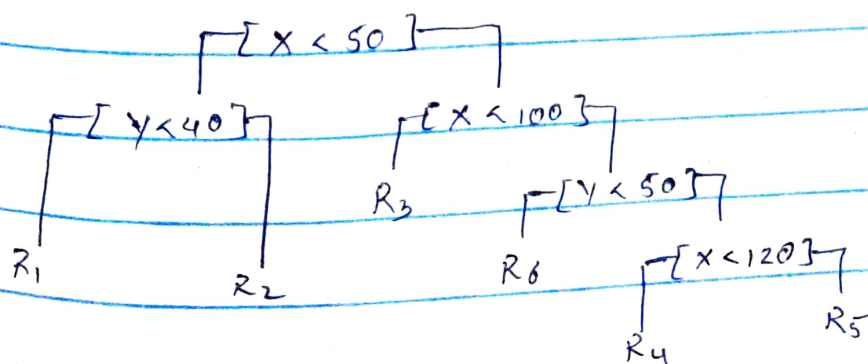 [ X < 50 ]
[ Y < 40 ] [ X < 100 ]
R3 [ Y < 50 ]
R1 R2 R6 [ X < 120 ]
R4 R5